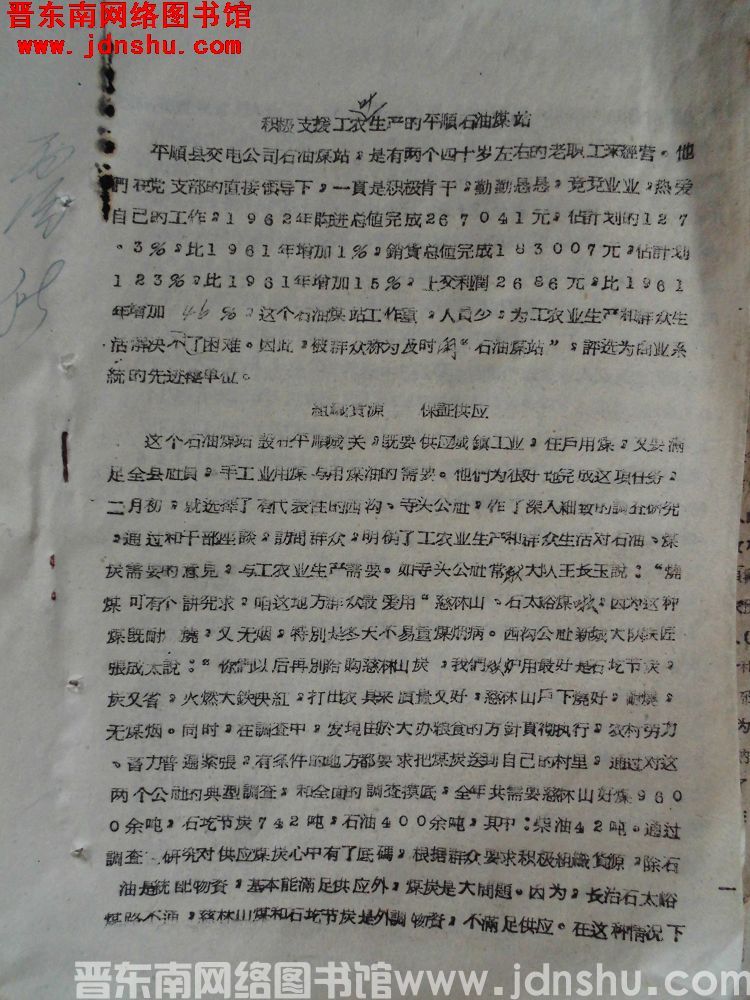 晋东南网络图书馆
www.jdnshu.com
业
积极支援工农生产的平順石油煤站
平順县交电公司石油煤站，是有两个四十岁左右的老职工来經营。他
們在党支部的直接領导下，一貫是积极肯干，勤勤恳恳，兢兢业业，热爱
自己的工作，1962年购进总值完成267041元，佔計划的127
。3％，比1961年增加1％，銷貨总值完成183007元，佔計划
123％，比1961年增加15％，上交利潤2686元，比1961
年增加46％，这个石油煤站工作重，人員少，为工农业生产和群众生
活解决不了困难。因此，被群众称为及时 “石油煤站”，評选为商业系
統的先进 单位。
組織貨源　保証供应
这个石油煤站設在平順城关，既要供应城鎮工业，住戶用煤，又要滿
足全县社員，手工业用煤与用煤油的需要。他們为很好地完成这項任务，
二月初，就选择了有代表性的西沟、寺头公社，作了深入細致的調查研究
，通过和干部座談，訪問群众，明确了工农业生产和群众生活对石油、煤
炭需要的意見，与工农业生产需要。如寺头公社常 大队王长玉說：“燒
煤可有个講究求，咱这地方群众最爱用“慈林山、石太峪煤 ，因为这种
煤既耐燒，又无烟，特別是冬天不易熏煤烟病。西沟公社新城大队鉄匠
張成太說：“你們以后再別給购慈林山炭，我們 炉用最好是石圪节炭，
炭又省，火燃大鉄快紅，打出农具来質量又好，慈林山戶下燒好，耐燒，
无煤烟。同时，在調查中，发現由於大办粮食的方針貫彻执行，农村劳力
、畜力普遍緊張，有条件的地方都要求把煤炭送到自己的村里，通过对这
两个公社的典型調查，和全面的調查摸底，全年共需要慈林山好煤960
0余吨，石圪节炭742吨，石油400余吨，其中：柴油42吨。通过
調查 研究对供应煤炭心中有了底碼，根据群众要求积极組織貨源，除石
油是統配物資，基本能滿足供应外，煤炭是大問題。因为，长治石太峪
煤路不通，慈林山煤和石圪节炭是外調物資，不滿足供应。在这种情况下
晋东南网络图书馆www.jdnshu.com